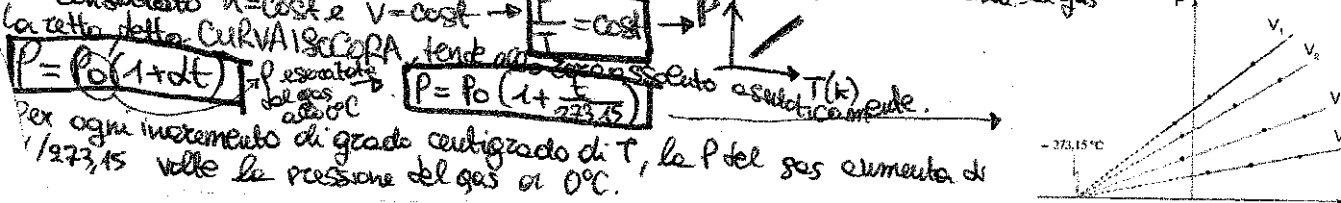 considerato n=cost e V=cost → P/T = cost → P
la retta detta CURVA ISOCORA, tende allo zero assoluto asintoticamente.
T(K)
P = P0 (1+αt) → P esercitata dal gas allo 0°C → P = P0 (1 + t/273,15)
Per ogni incremento di grado centigrado di T, la P del gas aumenta di
1/273,15 volte la pressione del gas a 0°C.
gas
P
V1
V2
V
V
- 273,15 °C